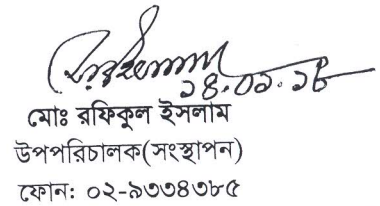 ১৪.০১.১৮
মোঃ রফিকুল ইসলাম
উপপরিচালক(সংস্থাপন)
ফোন: ০২-৯৩৩৪৩৮৫